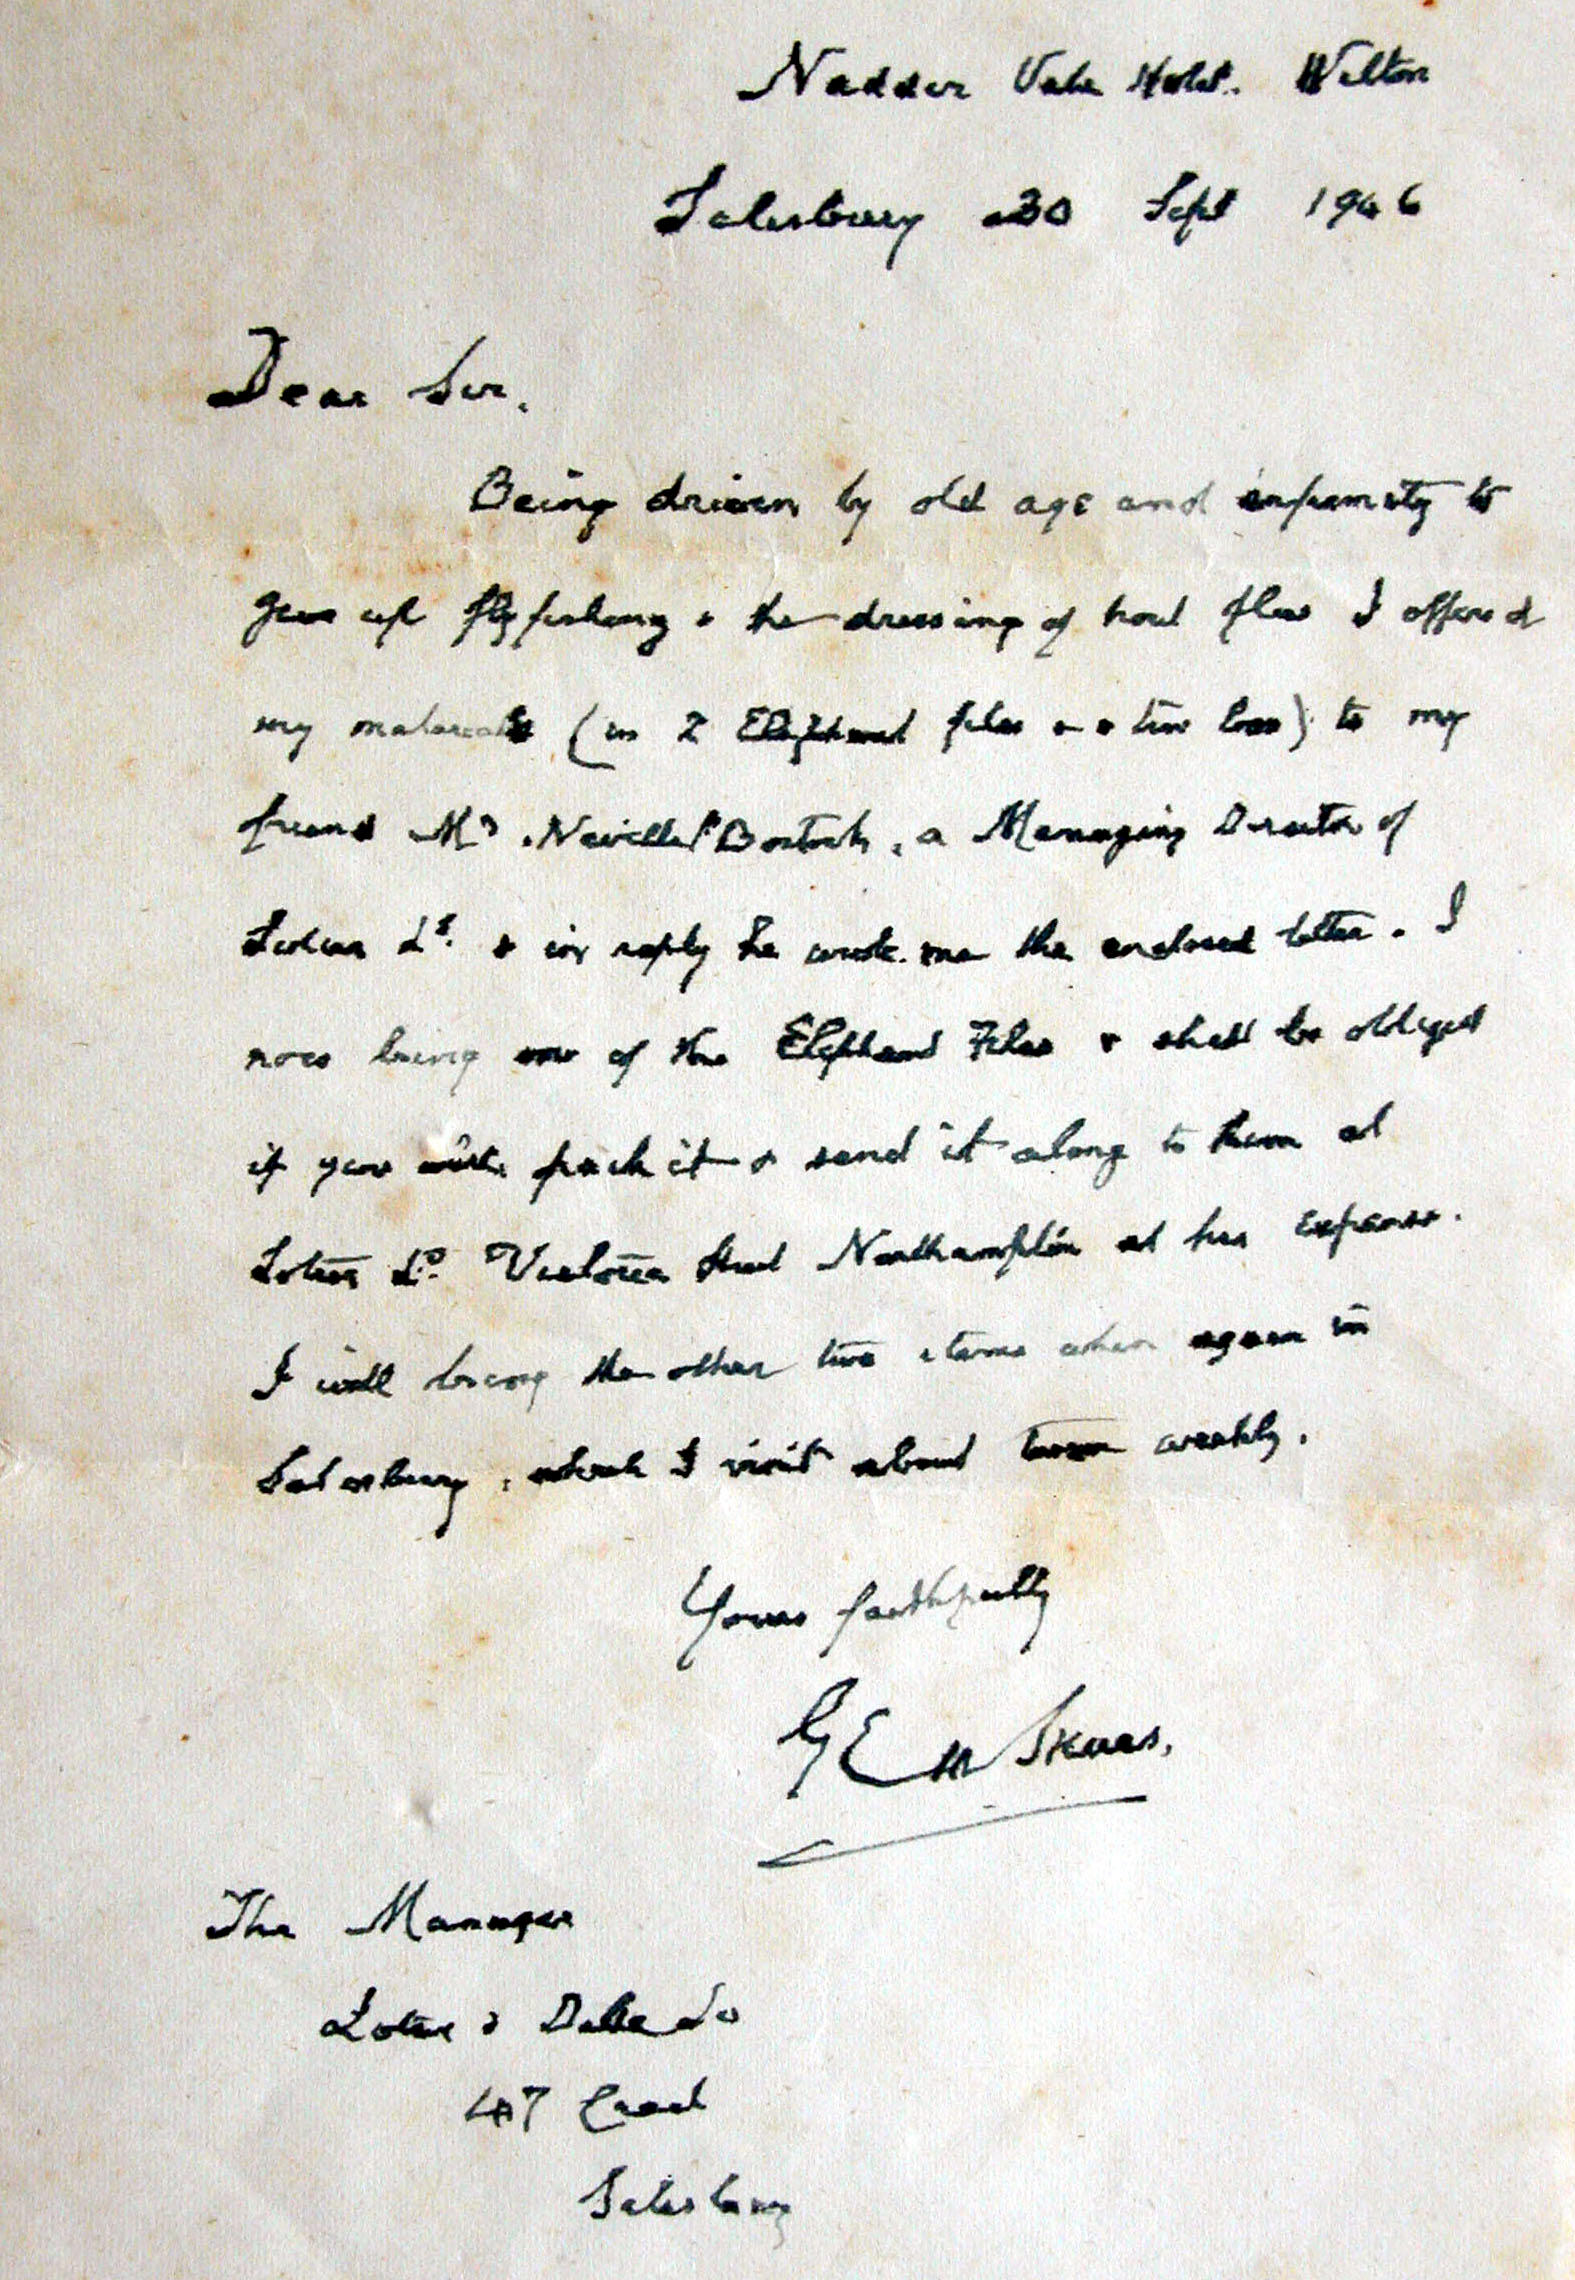 Nadder Vale Hotel. Wilton
Salisbury 30 Sept 1946
Dear Sir,
Being driven by old age and infirmity to
give up flyfishing & the dressing of trout flies I offered
my materials (in 2 Elephant files & a tin box) to my
friend Mr. Neville Bostock, a Managing Director of
Lotus Ld. & in reply he wrote me the enclosed letter. I
now bring one of the Elephant Files & shall be obliged
if you will pack it & send it along to them at
Lotus Ld. Victoria Street Northampton at his expense.
I will bring the other two items when again in
Salisbury, which I visit about twice weekly.
Yours faithfully
G E M Skues.
The Manager
Lotus & Delta Ld
47
Salisbury